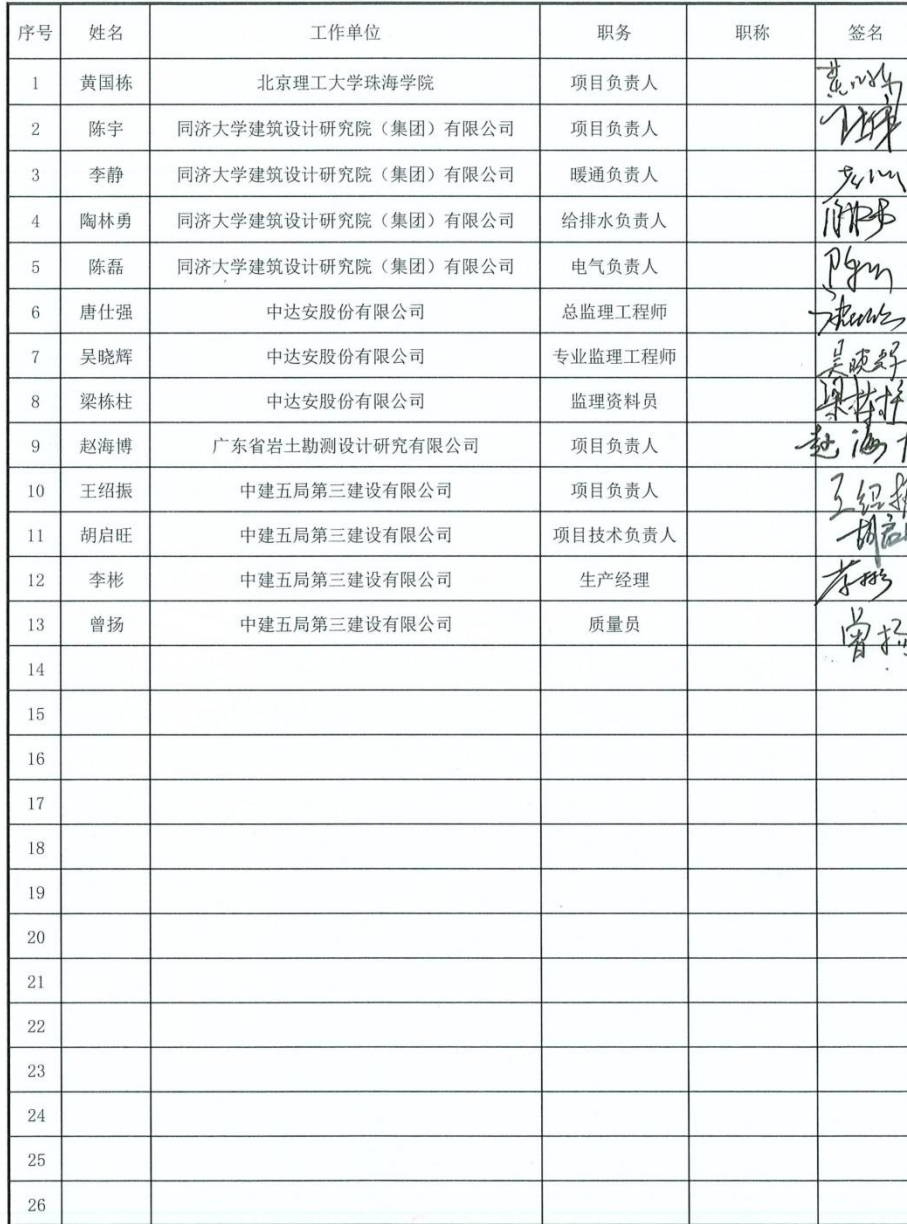 序号 姓名 工作单位 职务 职称 签名
1 黄国栋 北京理工大学珠海学院 项目负责人
2 陈宇 同济大学建筑设计研究院（集团）有限公司 项目负责人
3 李静 同济大学建筑设计研究院（集团）有限公司 暖通负责人
4 陶林勇 同济大学建筑设计研究院（集团）有限公司 给排水负责人
5 陈磊 同济大学建筑设计研究院（集团）有限公司 电气负责人
6 唐仕强 中达安股份有限公司 总监理工程师
7 吴晓辉 中达安股份有限公司 专业监理工程师 吴晓辉
8 梁栋柱 中达安股份有限公司 监理资料员 梁栋柱
9 赵海博 广东省岩土勘测设计研究有限公司 项目负责人 赵海
10 王绍振 中建五局第三建设有限公司 项目负责人 王绍振
11 胡启旺 中建五局第三建设有限公司 项目技术负责人 胡启
12 李彬 中建五局第三建设有限公司 生产经理 李彬
13 曾扬 中建五局第三建设有限公司 质量员 曾扬
14
15
16
17
18
19
20
21
22
23
24
25
26